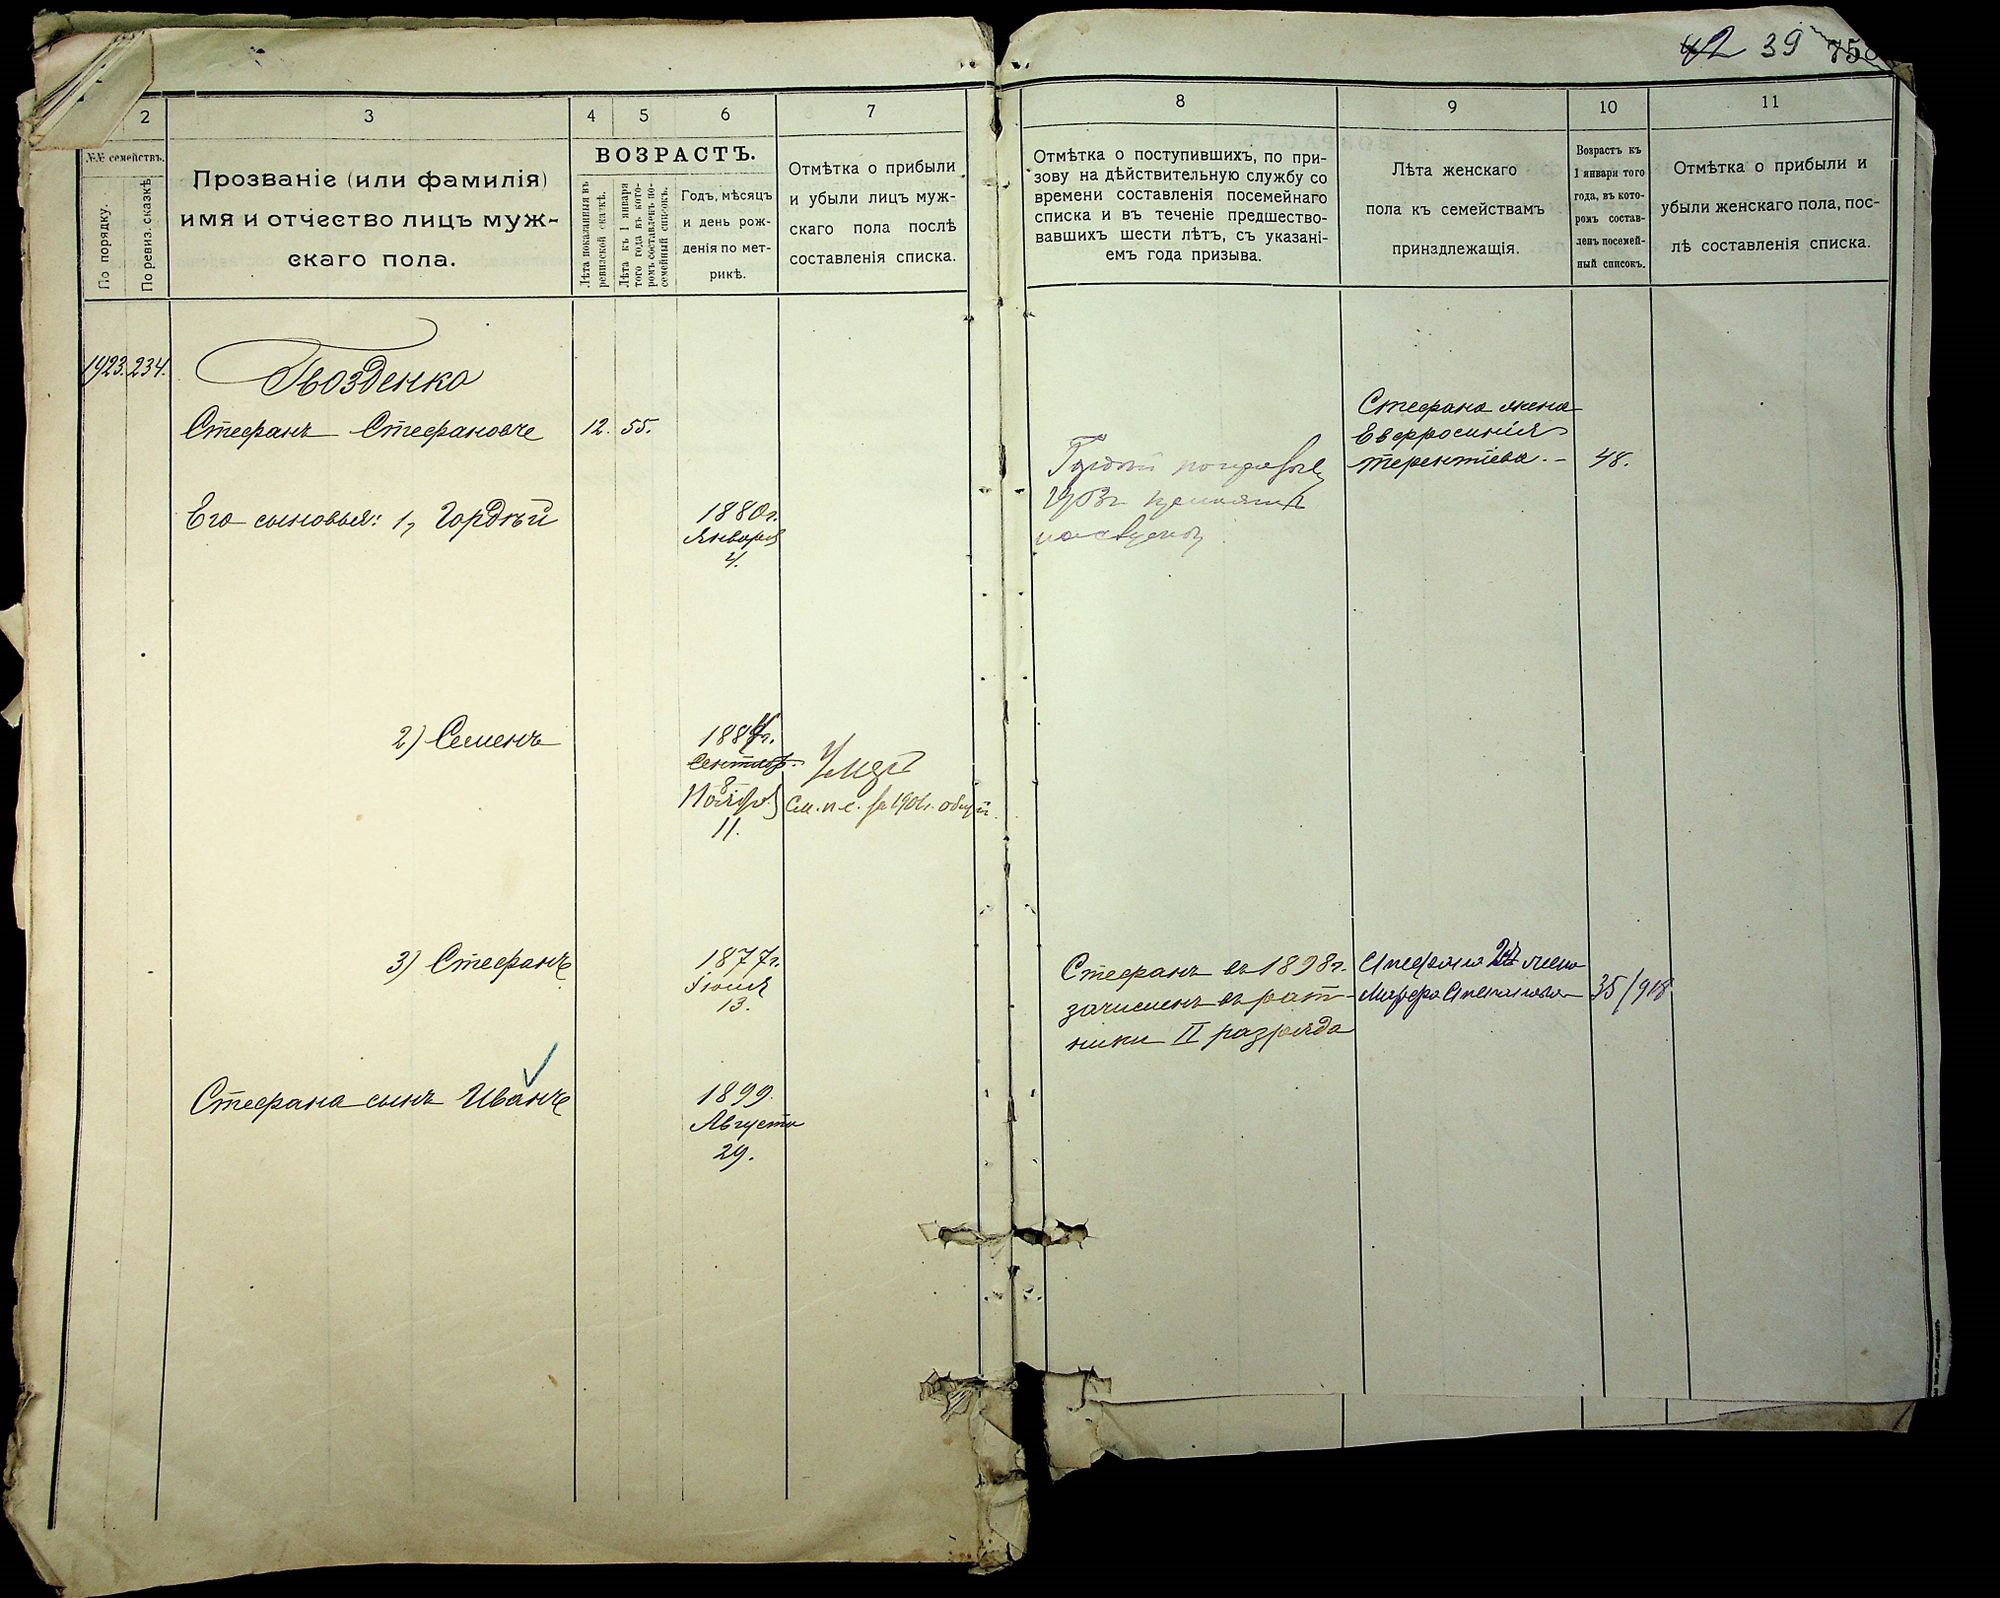 42 39 758
2
3
4
5
6
7
№№ семействъ.
По порядку.
По ревиз. сказкѣ.
Прозваніе (или фамилія)
имя и отчество лицъ муж-
скаго пола.
ВОЗРАСТЪ.
Лѣта показанныя въ
ревизской сказкѣ.
Лѣта къ 1 января
того года въ кото-
ромъ составленъ по-
семейный списокъ.
Годъ, мѣсяцъ
и день рож-
денія по мет-
рикѣ.
Отмѣтка о прибыли
и убыли лицъ муж-
скаго пола послѣ
составленія списка.
8
9
10
11
Отмѣтка о поступившихъ, по при-
зову на дѣйствительную службу со
времени составленія посемейнаго
списка и въ теченіе предшество-
вавшихъ шести лѣтъ, съ указані-
емъ года призыва.
Лѣта женскаго
пола къ семействамъ
принадлежащія.
Возрастъ къ
1 января того
года, въ кото-
ромъ состав-
ленъ посемей-
ный списокъ.
Отмѣтка о прибыли и
убыли женскаго пола, пос-
лѣ составленія списка.
1923. 234.
Гвозденко
Стефанъ Стефановъ
12. 55.
Стефана жена
Евфросинія
Терентіева. –
48.
Его сыновья: 1, Гордѣй
1880г.
Января
4.
Гордѣй
2) Семенъ
1884г.
Сентябр.
8
Ноября
11.
См. п. с. за 1906г. общій.
3) Стефанъ
1877г.
Іюня
13.
Стефанъ въ 1898г.
зачисленъ въ рат-
ники II разряда
Стефана 2я жена
Марфа Степановна
35/918
Стефана сынъ Иванъ
1899.
Августа
29.